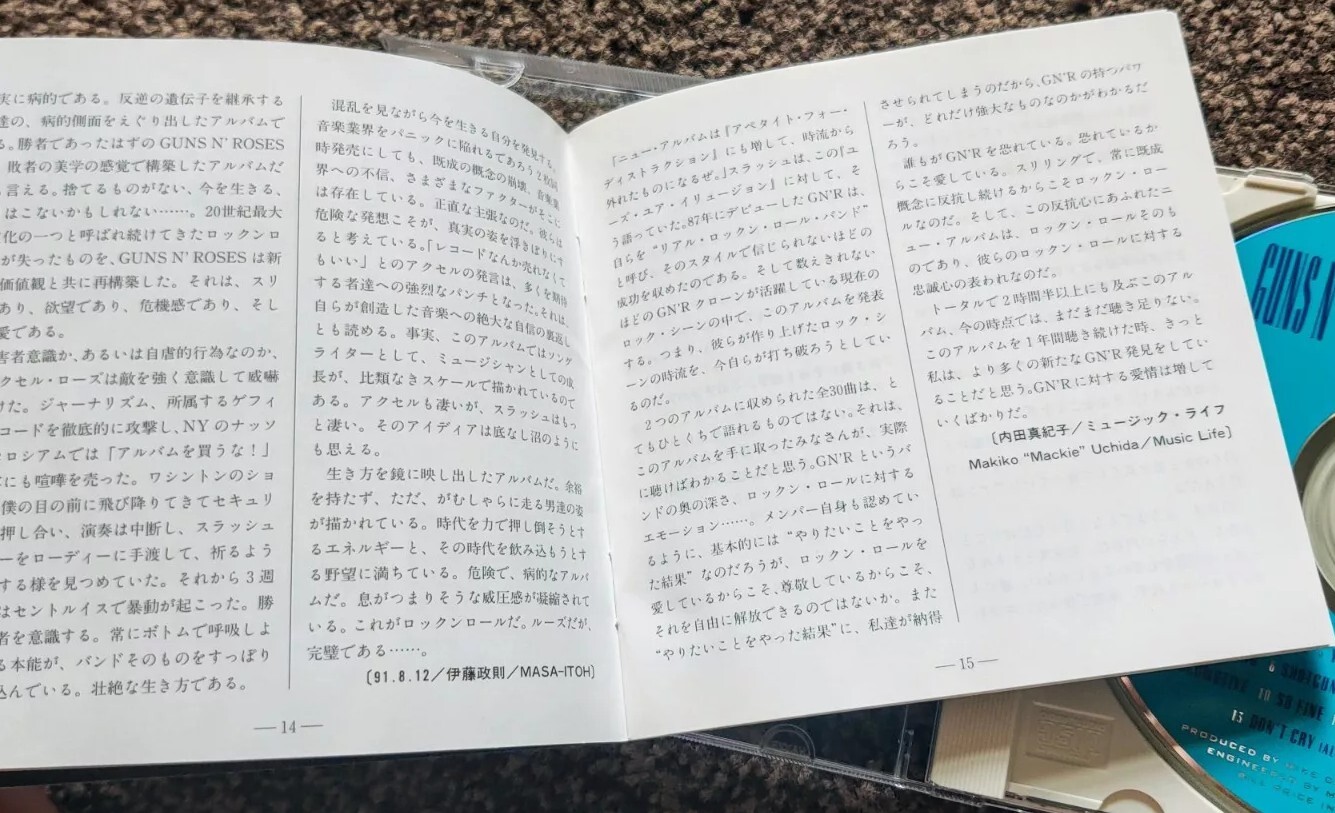 実に病的である。反逆の遺伝子を継承する
達の、病的側面をえぐり出したアルバムで
る。勝者であったはずの GUNS N' ROSES
敗者の美学の感覚で構築したアルバムだ
言える。捨てるものがない、今を生きる、
はこないかもしれない……。20世紀最大
化の一つと呼ばれ続けてきたロックンロ
が失ったものを、GUNS N' ROSES は新
価値観と共に再構築した。それは、スリ
あり、欲望であり、危機感であり、そし
愛である。
害者意識か、あるいは自虐的行為なのか、
クセル・ローズは敵を強く意識して威嚇
けた。ジャーナリズム、所属するゲフィ
コードを徹底的に攻撃し、NY のナッソ
ロシアムでは「アルバムを買うな！」
にも喧嘩を売った。ワシントンのショ
僕の目の前に飛び降りてきてセキュリ
押し合い、演奏は中断し、スラッシュ
ーをローディーに手渡して、祈るよう
する様を見つめていた。それから 3 週
はセントルイスで暴動が起こった。勝
者を意識する。常にボトムで呼吸しよ
る本能が、バンドそのものをすっぽり
込んでいる。壮絶な生き方である。
混乱を見ながら今を生きる自分を発見する。
音楽業界をパニックに陥れるであろう 2 枚同
時発売にしても、既成の概念の崩壊、音楽業
界への不信、さまざまなファクターがそこに
は存在している。正直な主張なのだ。彼らは
危険な発想こそが、真実の姿を浮きぼりにす
ると考えている。「レコードなんか売れなくて
もいい」とのアクセルの発言は、多くを期待
する者達への強烈なパンチとなった。それは、
自らが創造した音楽への絶大な自信の裏返し
とも読める。事実、このアルバムではソング
ライターとして、ミュージシャンとしての成
長が、比類なきスケールで描かれているので
ある。アクセルも凄いが、スラッシュはもっ
と凄い。そのアイディアは底なし沼のように
も思える。
生き方を鏡に映し出したアルバムだ。余裕
を持たず、ただ、がむしゃらに走る男達の姿
が描かれている。時代を力で押し倒そうとす
るエネルギーと、その時代を飲み込もうとす
る野望に満ちている。危険で、病的なアルバ
ムだ。息がつまりそうな威圧感が凝縮されて
いる。これがロックンロールだ。ルーズだが、
完璧である……。
〔91.8.12／伊藤政則／MASA-ITOH〕
— 14 —
『ニュー・アルバムは『アペタイト・フォー・
ディストラクション』にも増して、時流から
外れたものになるぜ。』スラッシュは、この『ユ
ーズ・ユア・イリュージョン』に対して、そ
う語っていた。87年にデビューした GN'R は、
自らを “リアル・ロックン・ロール・バンド”
と呼び、そのスタイルで信じられないほどの
成功を収めたのである。そして数えきれない
ほどの GN'R クローンが活躍している現在の
ロック・シーンの中で、このアルバムを発表
する。つまり、彼らが作り上げたロック・シ
ーンの時流を、今自らが打ち破ろうとしてい
るのだ。
2 つのアルバムに収められた全30曲は、と
てもひとくちで語れるものではない。それは、
このアルバムを手に取ったみなさんが、実際
に聴けばわかることだと思う。GN'R というバ
ンドの奥の深さ、ロックン・ロールに対する
エモーション……。メンバー自身も認めてい
るように、基本的には “やりたいことをやっ
た結果” なのだろうが、ロックン・ロールを
愛しているからこそ、尊敬しているからこそ、
それを自由に解放できるのではないか。また
“やりたいことをやった結果” に、私達が納得
させられてしまうのだから、GN'R の持つパワ
ーが、どれだけ強大なものなのかがわかるだ
ろう。
誰もが GN'R を恐れている。恐れているか
らこそ愛している。スリリングで、常に既成
概念に反抗し続けるからこそロックン・ロー
ルなのだ。そして、この反抗心にあふれたニ
ュー・アルバムは、ロックン・ロールそのも
のであり、彼らのロックン・ロールに対する
忠誠心の表われなのだ。
トータルで 2 時間半以上にも及ぶこのアル
バム、今の時点では、まだまだ聴き足りない。
このアルバムを 1 年間聴き続けた時、きっと
私は、より多くの新たな GN'R 発見をしてい
ることだと思う。GN'R に対する愛情は増して
いくばかりだ。
〔内田真紀子／ミュージック・ライフ
Makiko “Mackie” Uchida／Music Life〕
— 15 —
GUNS N
6 SHOTGUN
10 SO FINE
13 DON'T CRY
PRODUCED BY
ENGINEERED BY
BILL PRICE